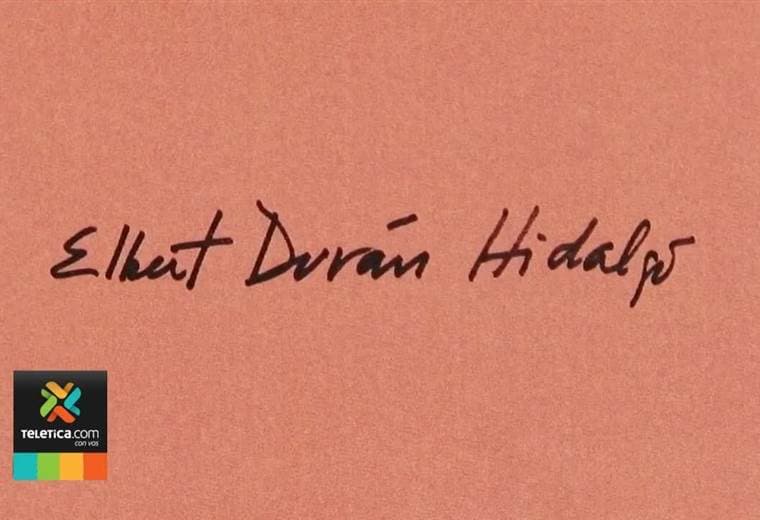 Elbert Durán Hidalgo
TELETICA.COM
con vos